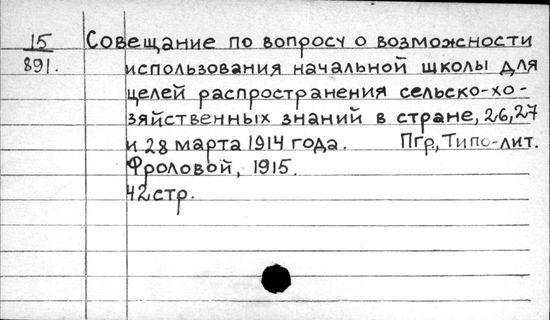 15 Совещание по вопросу о возможности
891. использования начальной школы для
целей распространения сельско-хо-
зяйственных знаний в стране, 26, 27
и 28 марта 1914 года. Пгр, Типо-лит.
Фроловой, 1915.
42 стр.